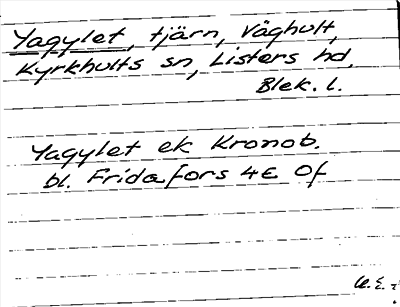 Yagylet, tjärn, Våghult,
Kyrkhults sn, Listers hd.
Blek. l.
Yagylet ek Kronob.
bl. Fridafors 4E Of